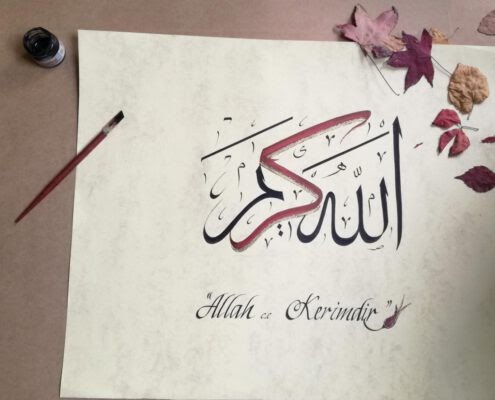 الله كريم
"Allah c.c Kerimdir"